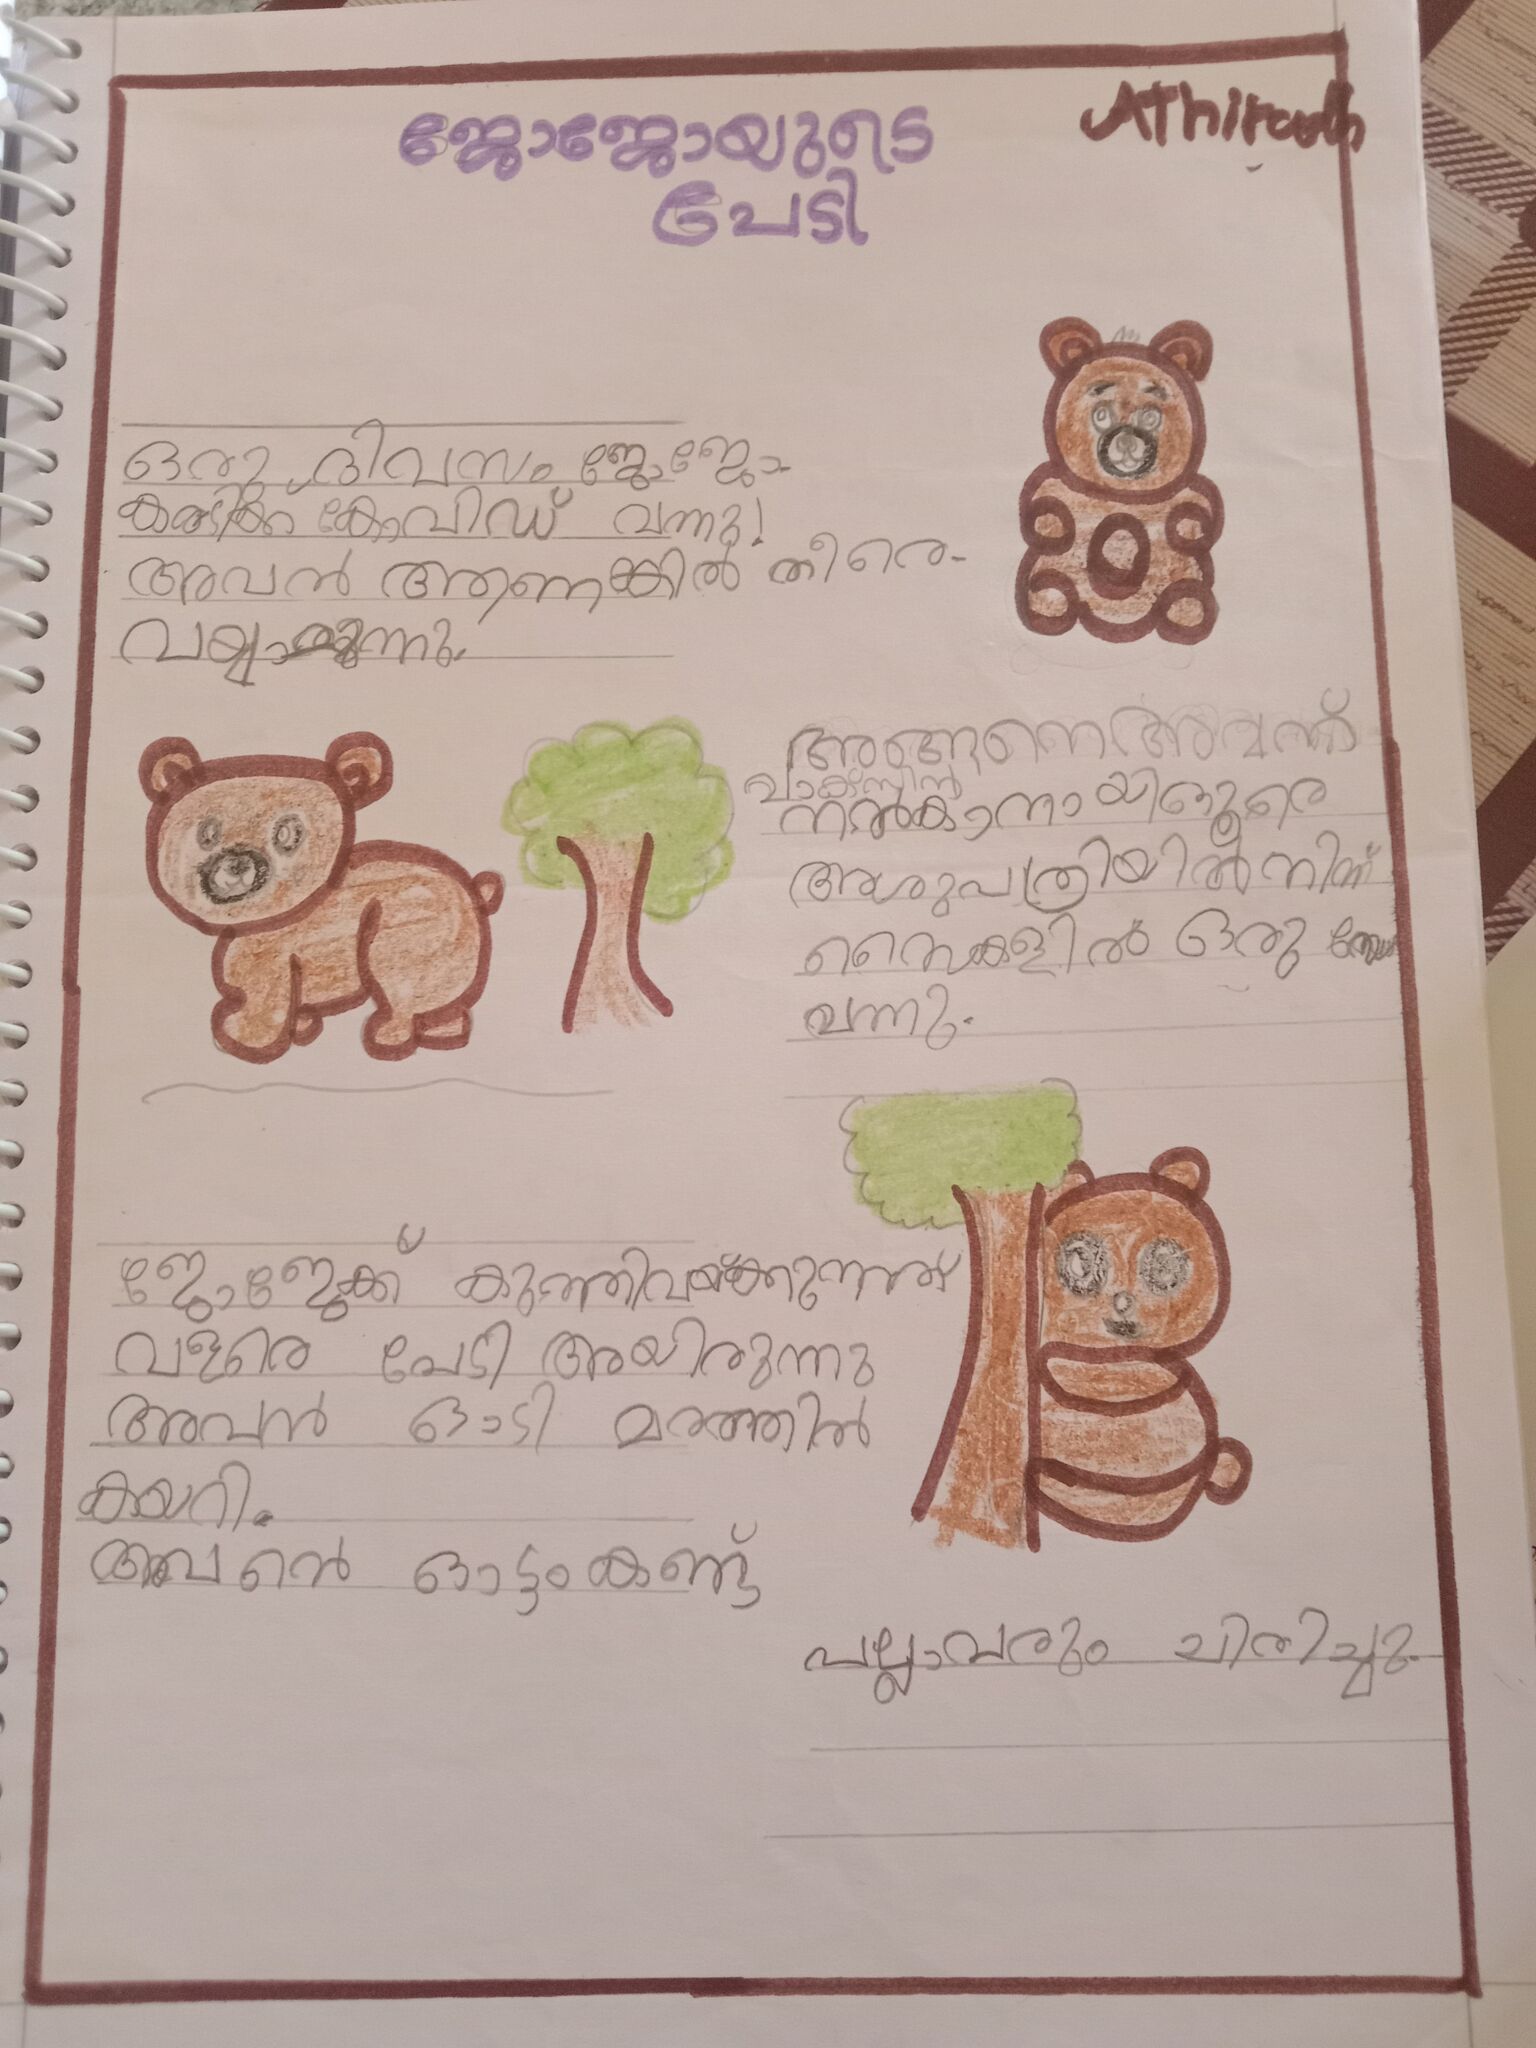 Athirath
ജോജോയുടെ
പേടി
ഒരു ദിവസം ജോജോ
കരടിക്ക് കോവിഡ് വന്നു!
അവൻ ആണെങ്കിൽ തീരെ
വയ്യാരുന്നു.
അങ്ങനെ അവന്
വാക്സിൻ
നൽകാനായി ദൂരെ
അശുപത്രിയിൽ നിന്ന്
സൈക്കളിൽ ഒരു
വന്നു.
ജോജേക്ക് കുത്തിവയ്ക്കുന്നത്
വളരെ പേടി അയിരുന്നു
അവൻ ഓടി മരത്തിൽ
കയറി.
അവൻെ ഓട്ടം കണ്ട്
പല്ലാവരും ചിരിച്ചു.